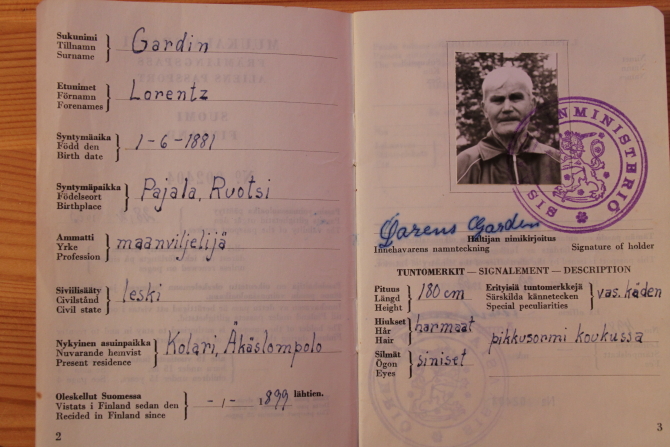 Sukunimi
Tillnamn
Surname
Gardin
Etunimet
Förnamn
Forenames
Lorentz
Syntymäaika
Född den
Birth date
1-6-1881
Syntymäpaikka
Födelseort
Birthplace
Pajala, Ruotsi
Ammatti
Yrke
Profession
maanviljelijä
Siviilisääty
Civilstånd
Civil state
leski
Nykyinen asuinpaikka
Nuvarande hemvist
Present residence
Kolari, Äkäslompolo
Oleskellut Suomessa
Vistats i Finland sedan den
Recided in Finland since
-1- 1899 lähtien.
2
SISÄ
NMINISTERIÖ
Larens Garden
Haltijan nimikirjoitus
Innehavarens namnteckning
Signature of holder
TUNTOMERKIT — SIGNALEMENT — DESCRIPTION
Pituus
Längd
Height
180 cm
Erityisiä tuntomerkkejä
Särskilda kännetecken
Special peculiarities
vas. käden
pikkusormi koukussa
Hiukset
Hår
Hair
harmaat
Silmät
Ögon
Eyes
siniset
3